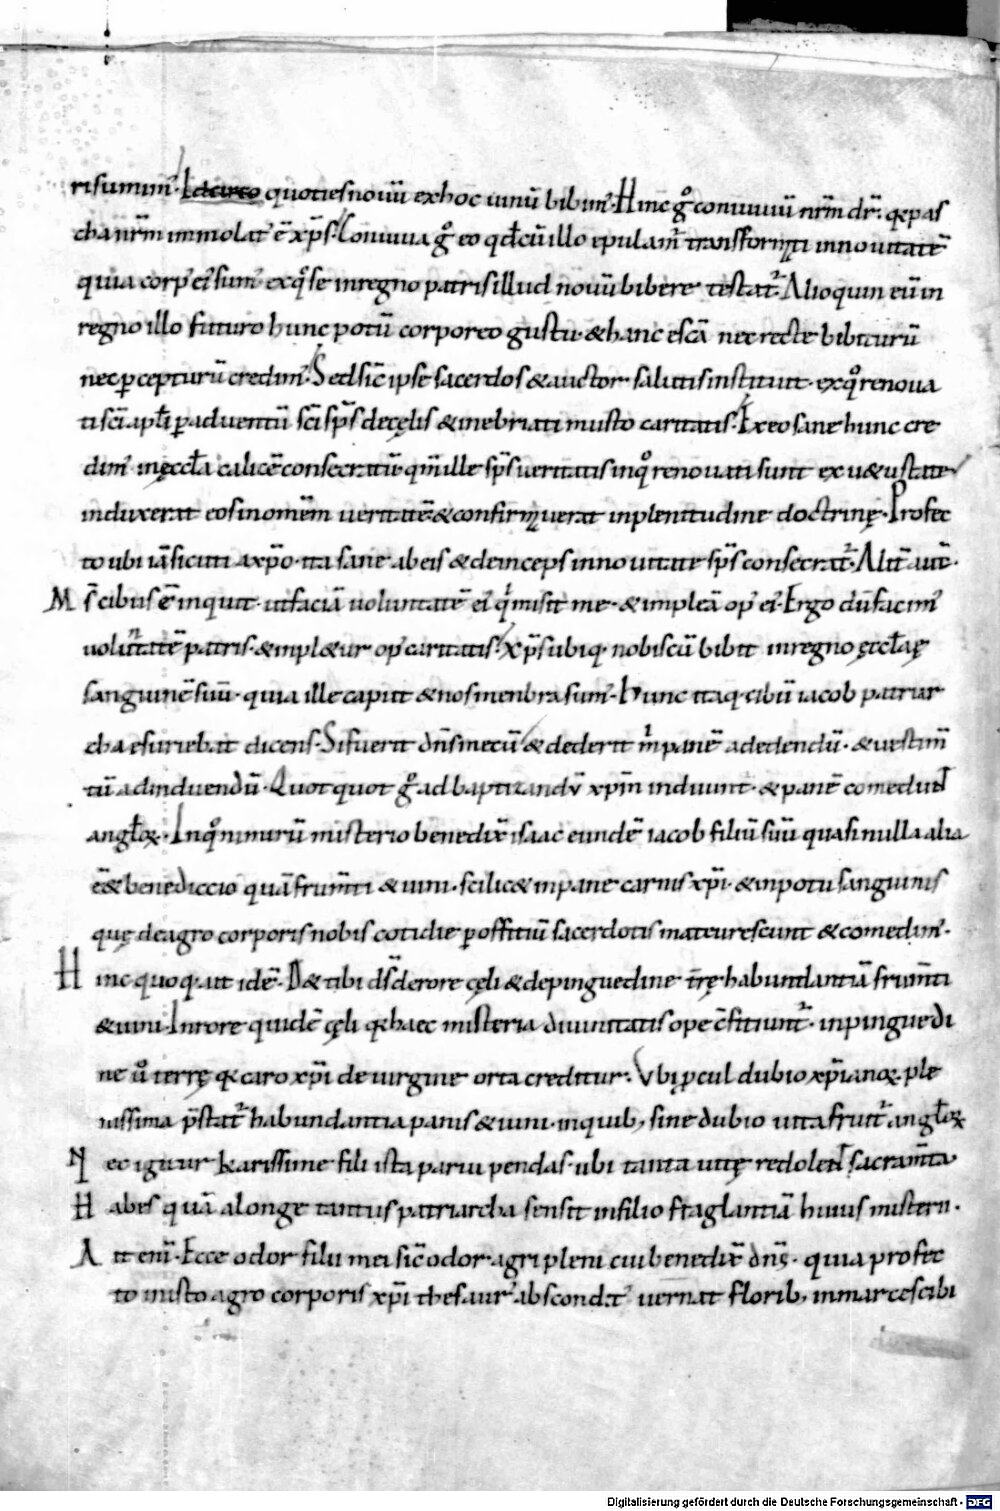 risumım᾿. Idcirco quotiesnouū exhoc uinū bibim᾿. Hinc g̊ conuiuiū nr̄m dr̄. q̨ pas
cha nr̄m immolat᾿ ē xp̄s. Conuiua g̊ eo qđ cū illo epulam̄ transformti innouitatē
quia corp᾿ ei᾿ sum᾿ exq̊ se inregno patris illud nouū bibere testat᾿. Alioquin eū in
regno illo futuro hunc potū corporeo gustu. &hanc escā nec recte bibiturū
nec p̱cepturū credim᾿. Sed sic̄ ipse sacerdos & auctor salutis instituit. exq̊ renoua
ti sc̄i apłi p̱aduentū sc̄i sp̄s decęlis &inebriati musto caritatis. Exeo sane hunc cre
dim᾿ inęccła calicē consecratū qm̄ ille sp̄s ueritatis inq̊ renouati sunt exu&ustate
induxerat eos inomēm ueritatē. &confirmuerat inplenitudine doctrinę. Profec
to ubi iā sicuti axp̄o. ita sane abeis &deinceps innouitate sp̄s consecrat᾿. Alit̄ aut̄.
M s̄ cibus ē inquit. utfaciā uoluntatē ei᾿ q̍ misit me. &impleā op᾿ ei᾿. Ergo dū facim᾿
uolutatē patris. &impl&ur op᾿ caritatis. xp̄s ubiq. nobiscū bibit inregno ęccłaę
sanguinē suū. quia ille caput &nos menbra sum᾿. Hunc itaq. cibū iacob patriar
cha esuriebat dicens. Si fuerit dn̄s mecū &dederit m̍ panē adedendū. &uestim̄
tū adinduendū. Quotquot g̊ ad baptizandū xp̄m induunt. &panē comedut̄
angłoꝝ. Inq̊ nimirū misterio benedix̄ isaac eundē iacob filiū suū quasi nulla alia
ēet benediccio quā frum̄ti &uini. scilic& inpane carnis xp̄i. &inpotu sanguinis
quę deagro corporis nobis cotidie p̱offitiū sacerdotis maturescunt &comedim᾿.
H inc quoq. ait idē. D& tibi ds̄ derore cęli &depinguedine tr̄ę habundantiā frum̄ti
&uini. Inrore quidē cęli q̨ haec misteria diuinitatis ope c̄fitiunt᾿. inpinguedi
ne u̇̊ terrę q̨ caro xp̄i de uirgine orta creditur. Vbi p̱cul dubio xp̄ianoꝝ. ple
nissima p̄stat᾿ habundantia panis &uini. inquib; sine dubio uita fruit᾿ angłoꝝ
N ec igitur karissime fili ista parui pendas. ubi tanta uitę redolet̄ sacram̄ta
H abes quā alonge tantus patriarcha sensit infilio fraglantiā huius misterii.
A it enī. Ecce odor filii mei sic̄ odor agri pleni cui benedix̄ dn̄s. quia profec
to inisto agro corporis xp̄i thesaur᾿ abscondit᾿ uernat florib; inmarcescibi
Digitalisierung gefördert durch die Deutsche Forschungsgemeinschaft - DFG